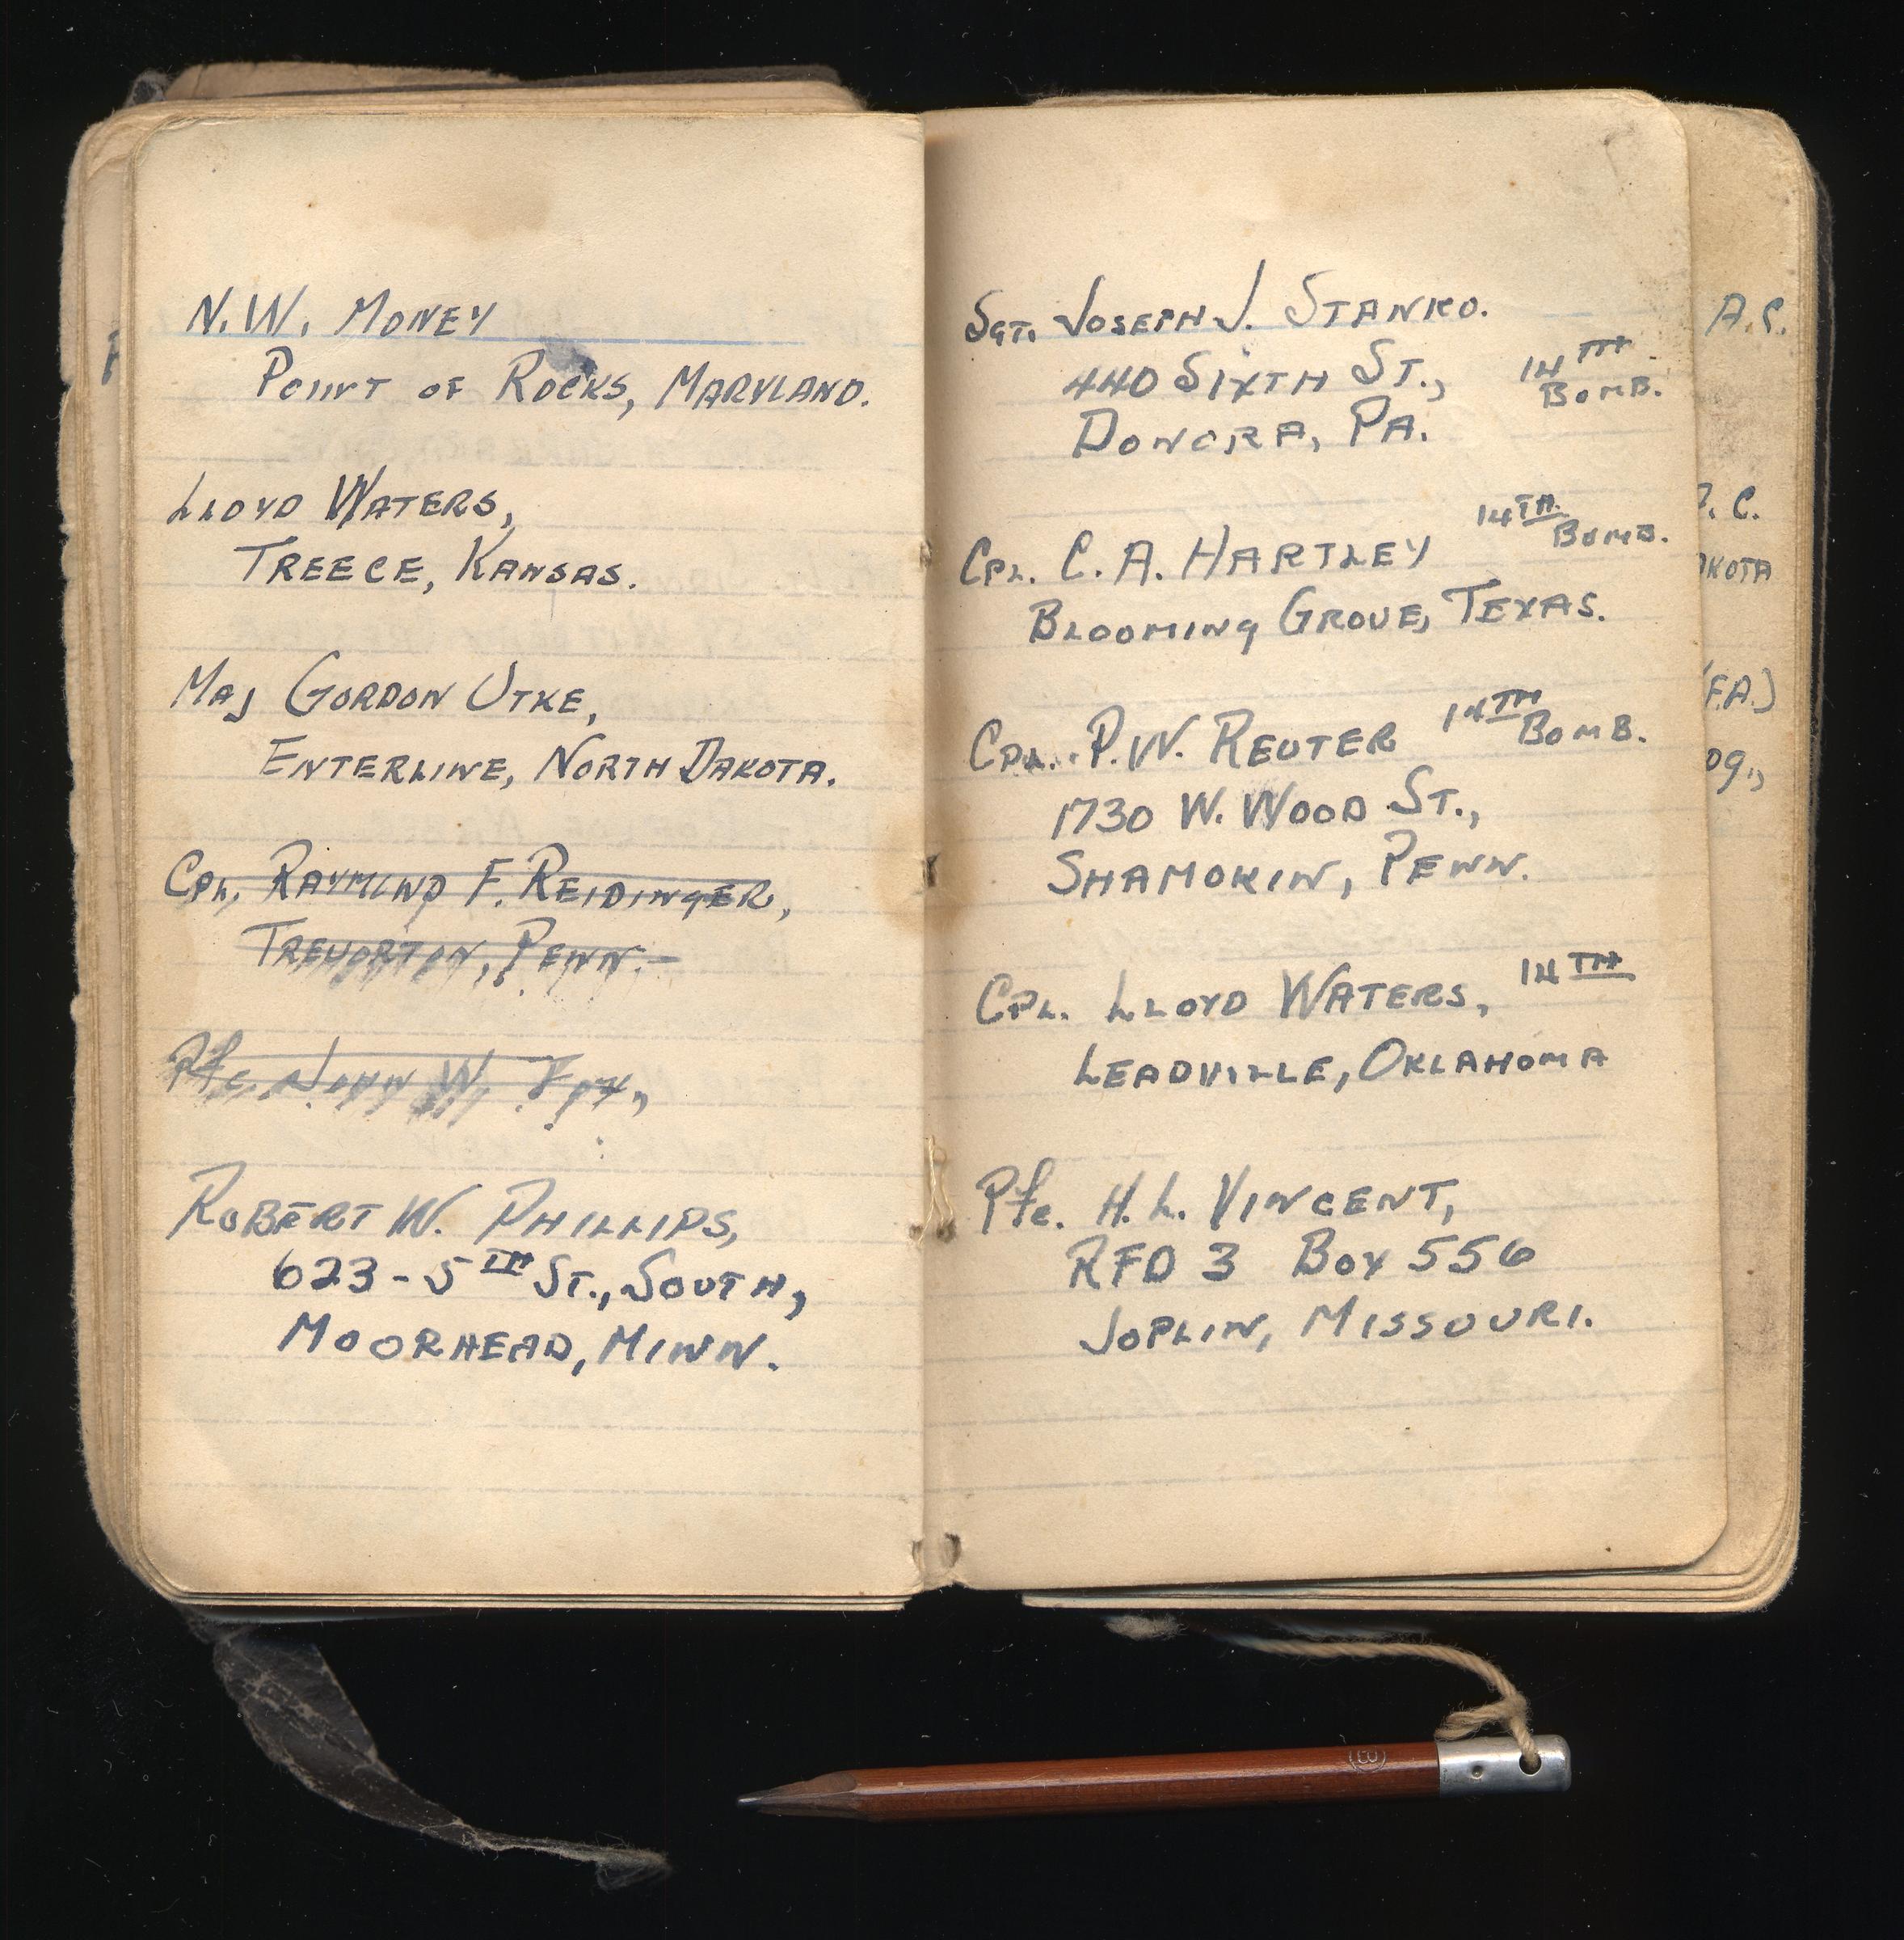 N.W. MONEY
POINT OF ROCKS, MARYLAND.
LLOYD WATERS,
TREECE, KANSAS.
MAJ GORDON UTKE,
ENTERLINE, NORTH DAKOTA.
CPL. RAYMOND F. REIDINGER,
TREVORTON, PENN.
Pfc. JOHN W. FOX,
ROBERT W. PHILLIPS,
623 - 5TH ST., SOUTH,
MOORHEAD, MINN.
SGT. JOSEPH J. STANKO.
440 SIXTH ST., 14TH BOMB.
DONORA, PA.
CPL. C. A. HARTLEY 14TH BOMB.
BLOOMING GROVE, TEXAS.
CPL. P.W. REUTER 14TH BOMB.
1730 W. WOOD ST.,
SHAMOKIN, PENN.
CPL. LLOYD WATERS, 14TH
LEADVILLE, OKLAHOMA
Pfc. H. L. VINCENT,
RFD 3 BOX 556
JOPLIN, MISSOURI.
A.C.
C.
KOTA
F.A.)